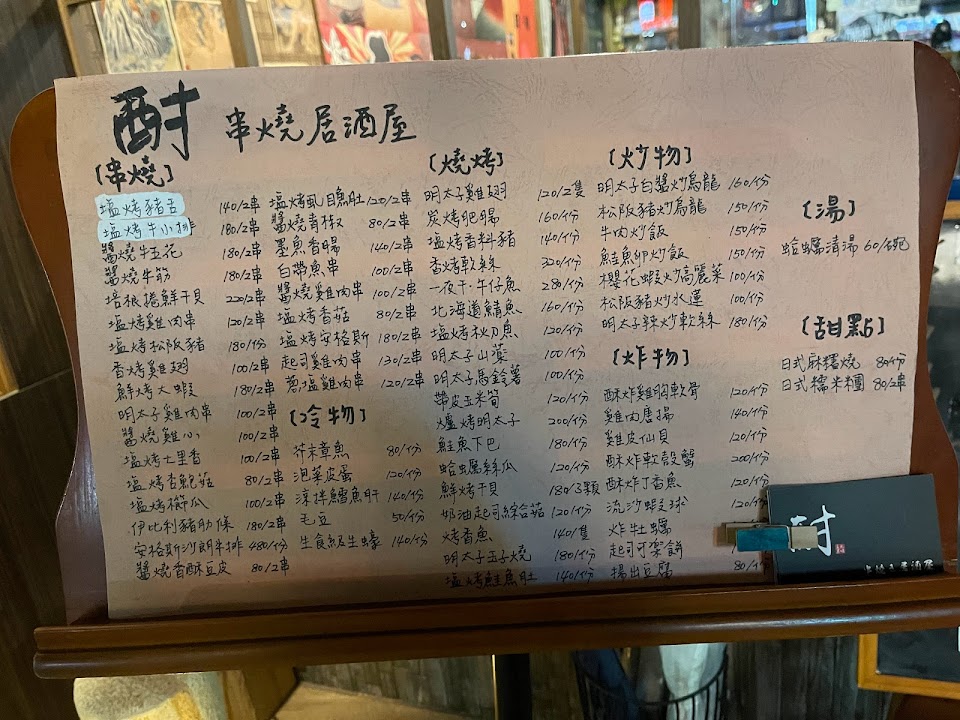 酎 串燒居酒屋
[串燒]
塩烤豬舌 140/2串
塩烤牛小排 180/2串
醬燒牛五花 180/2串
醬燒牛筋 180/2串
培根捲鮮干貝 220/2串
塩烤雞肉串 120/2串
塩烤松阪豬 180/份
香烤雞翅 100/2串
鮮烤大蝦 180/2串
明太子雞肉串 100/2串
醬燒雞心 100/2串
塩烤七里香 100/2串
塩烤杏鮑菇 80/2串
塩烤櫛瓜 100/2串
伊比利豬肋條 180/2串
安格斯沙朗牛排 480/份
醬燒香酥豆皮 80/2串
塩烤虱目魚肚 120/2串
醬燒青椒 80/2串
墨魚香腸 140/2串
白帶魚串 100/2串
醬燒雞肉串 100/2串
塩烤香菇 80/2串
塩烤安格斯 180/2串
起司雞肉串 130/2串
蔥塩雞肉串 120/2串
[冷物]
芥末章魚 80/份
泡菜皮蛋 120/份
涼拌鱈魚肝 140/份
毛豆 50/份
生食級生蠔 140/份
[燒烤]
明太子雞翅 120/2隻
炭烤肥腸 160/份
塩烤香料豬 140/份
香烤軟絲 320/份
一夜干·牛仔魚 280/份
北海道鯖魚 160/份
塩烤秋刀魚 120/份
明太子山藥 100/份
明太子馬鈴薯 100/份
帶皮玉米筍 120/份
爐烤明太子 200/份
鮭魚下巴 180/份
蛤蠣絲瓜 120/份
鮮烤干貝 180/3顆
奶油起司綜合菇 120/份
烤香魚 140/隻
明太子玉子燒 180/份
塩烤鮭魚肚 140/份
[炒物]
明太子白醬炒烏龍 160/份
松阪豬炒烏龍 150/份
牛肉炒飯 150/份
鮭魚卵炒飯 150/份
櫻花蝦炒高麗菜 100/份
松阪豬炒水蓮 100/份
明太子辣炒軟絲 180/份
[炸物]
酥炸雞胸軟骨 120/份
雞肉唐揚 140/份
雞皮仙貝 120/份
酥炸軟殼蟹 200/份
酥炸丁香魚 120/份
流沙蝦球 120/份
炸牡蠣
起司可樂餅
揚出豆腐 80/份
[湯]
蛤蠣清湯 60/碗
[甜點]
日式麻糬燒 80/份
日式糯米糰 80/2串
酎